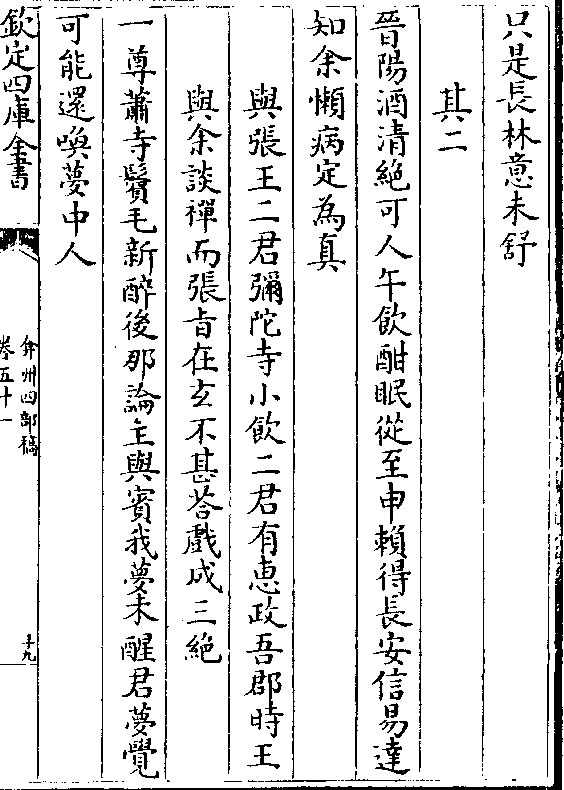 只是長林意未舒
其二
晉陽酒清絶可人午飲酣眠從至申賴得長安信易達
知余懶病定為真
與張王二君彌陀寺小飲二君有恵政吾郡時王
與余談禪而張旨在玄不甚荅戲成三絶
一尊蕭寺鬢毛新醉後那論主與賓我夢未醒君夢覺
可能還喚夢中人
欽定四庫全書
弇州四部稿
卷五十一
十九